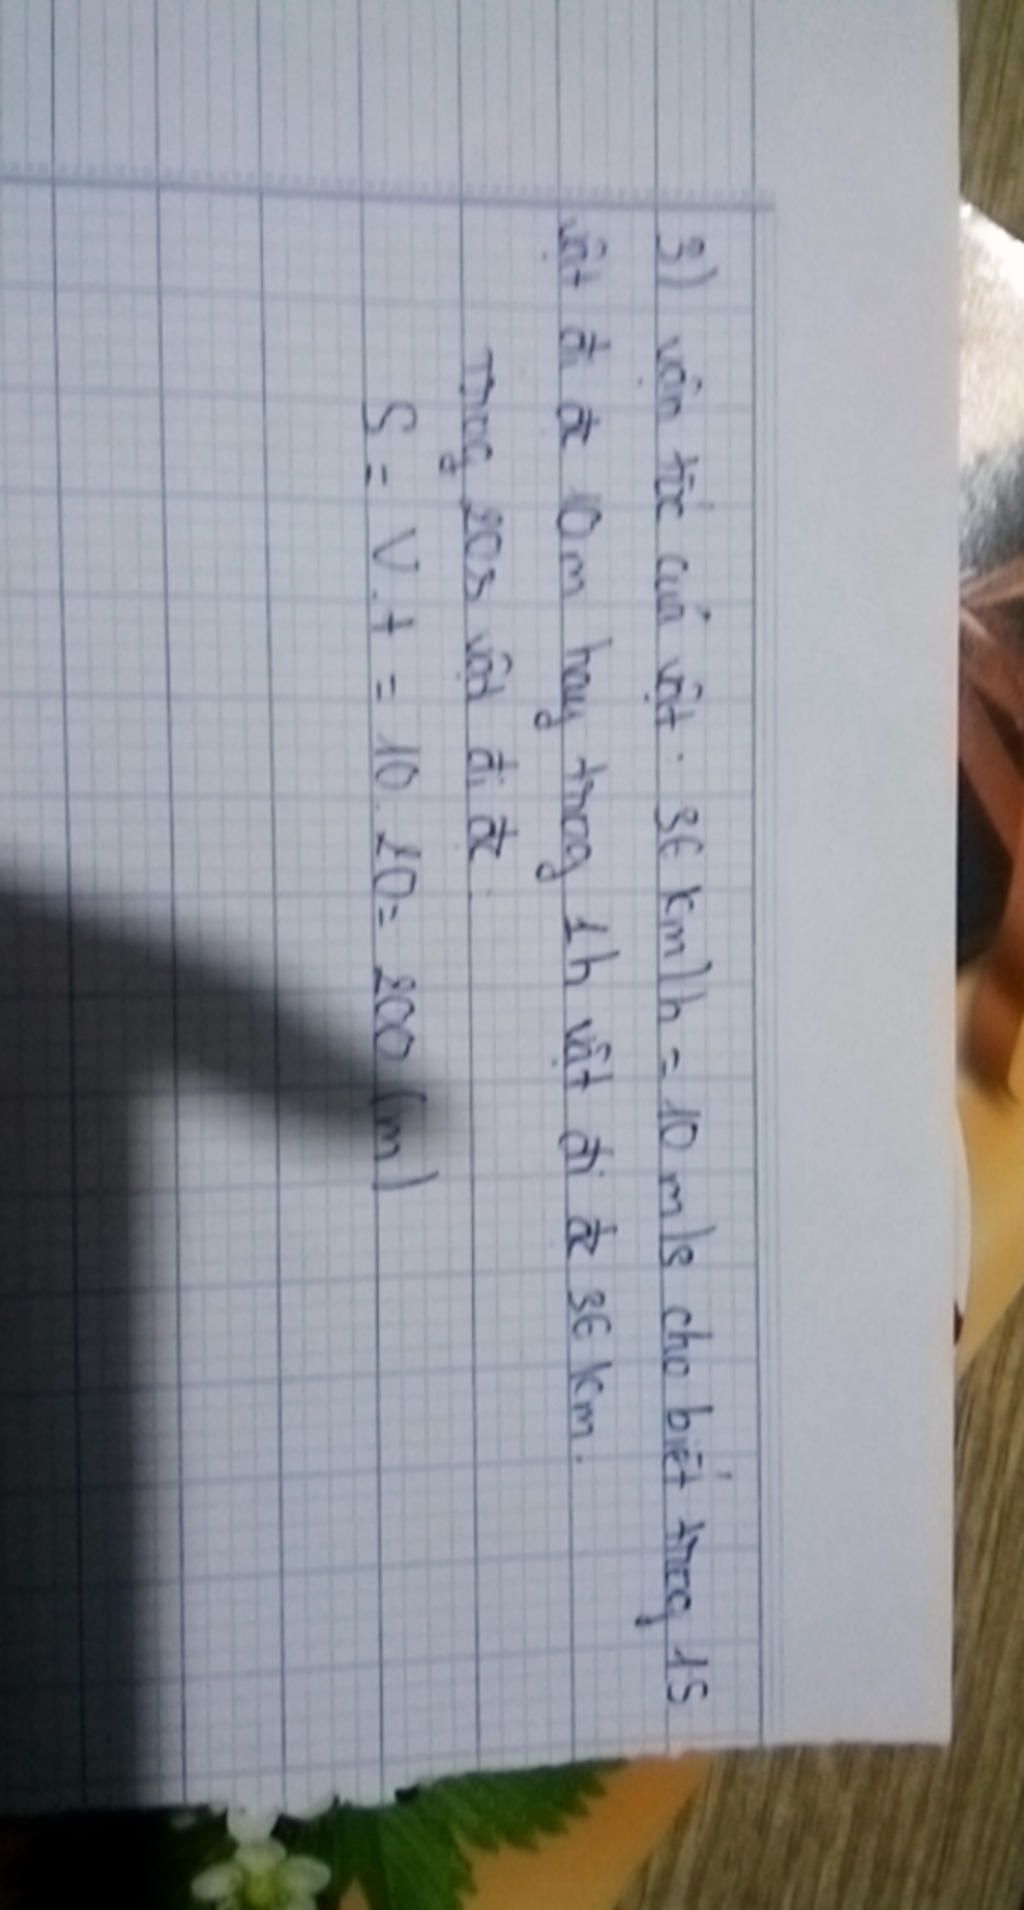 3) vận tốc của vật: 36 km/h = 10 m/s cho biết trong 1s
vật đi đc 10m hay trong 1h vật đi đc 36 km.
Trong 20s vật đi đc:
S = V.t = 10.20 = 200 (m)